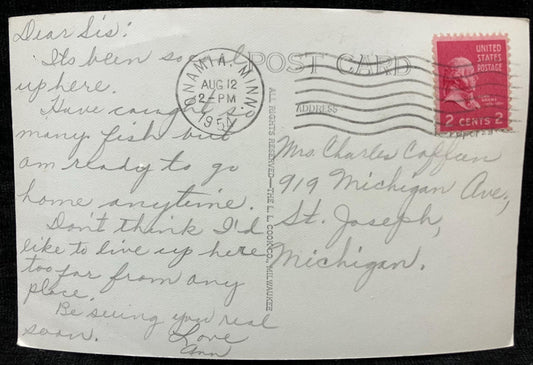 Dear Sis:
Its been so cool
up here.
Have caught
many fish but
am ready to go
home anytime.
Don't think I'd
like to live up here
too far from any
place.
Be seeing you real
soon. Love
Ann
POST CARD
ONAMIA, MINN.
AUG 12
2-PM
UNITED
STATES
POSTAGE
2 CENTS 2
ADDRESS
ALL RIGHTS RESERVED—THE L. L. COOK CO., MILWAUKEE
Mrs. Charles
919 Michigan Ave;
St. Joseph,
Michigan.